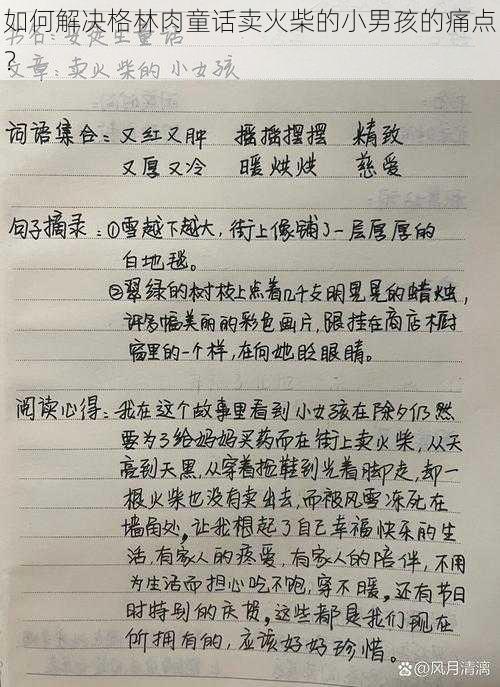 如何解决格林肉童话卖火柴的小男孩的痛点
?
书名:安徒生童话
文章:卖火柴的小女孩
词语集合:又红又肿 摇摇摆摆 精致
又厚又冷 暖烘烘 慈爱
句子摘录:①雪越下越大,街上像铺了一层厚厚的
白地毯。
②翠绿的树枝上点着几千支明晃晃的蜡烛,
许多幅美丽的彩色画片,跟挂在商店橱
窗里的一个样,在向她眨眼睛。
阅读心得:我在这个故事里看到小女孩在除夕仍然
要为了给妈妈买药而在街上卖火柴,从天
亮到天黑,从穿着拖鞋到光着脚走,却一
根火柴也没有卖出去,而被风雪冻死在
墙角处,让我想起了自己幸福快乐的生
活,有家人的疼爱,有家人的陪伴,不用
为生活而担心吃不饱,穿不暖,还有节日
时特别的庆贺,这些都是我们现在
所拥有的,应该好好珍惜。
@风月清漓